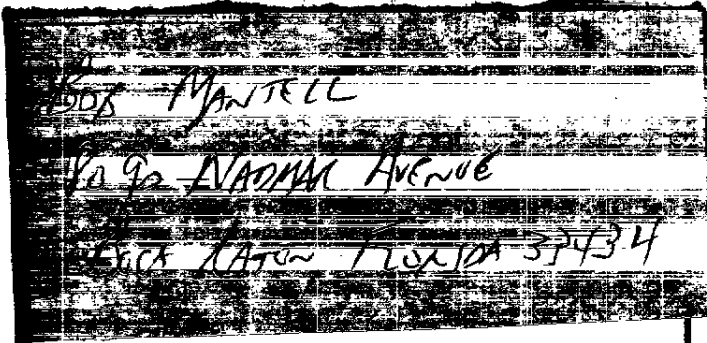 Bob Mantell
Nadmar Avenue
Boca Raton Florida 33434